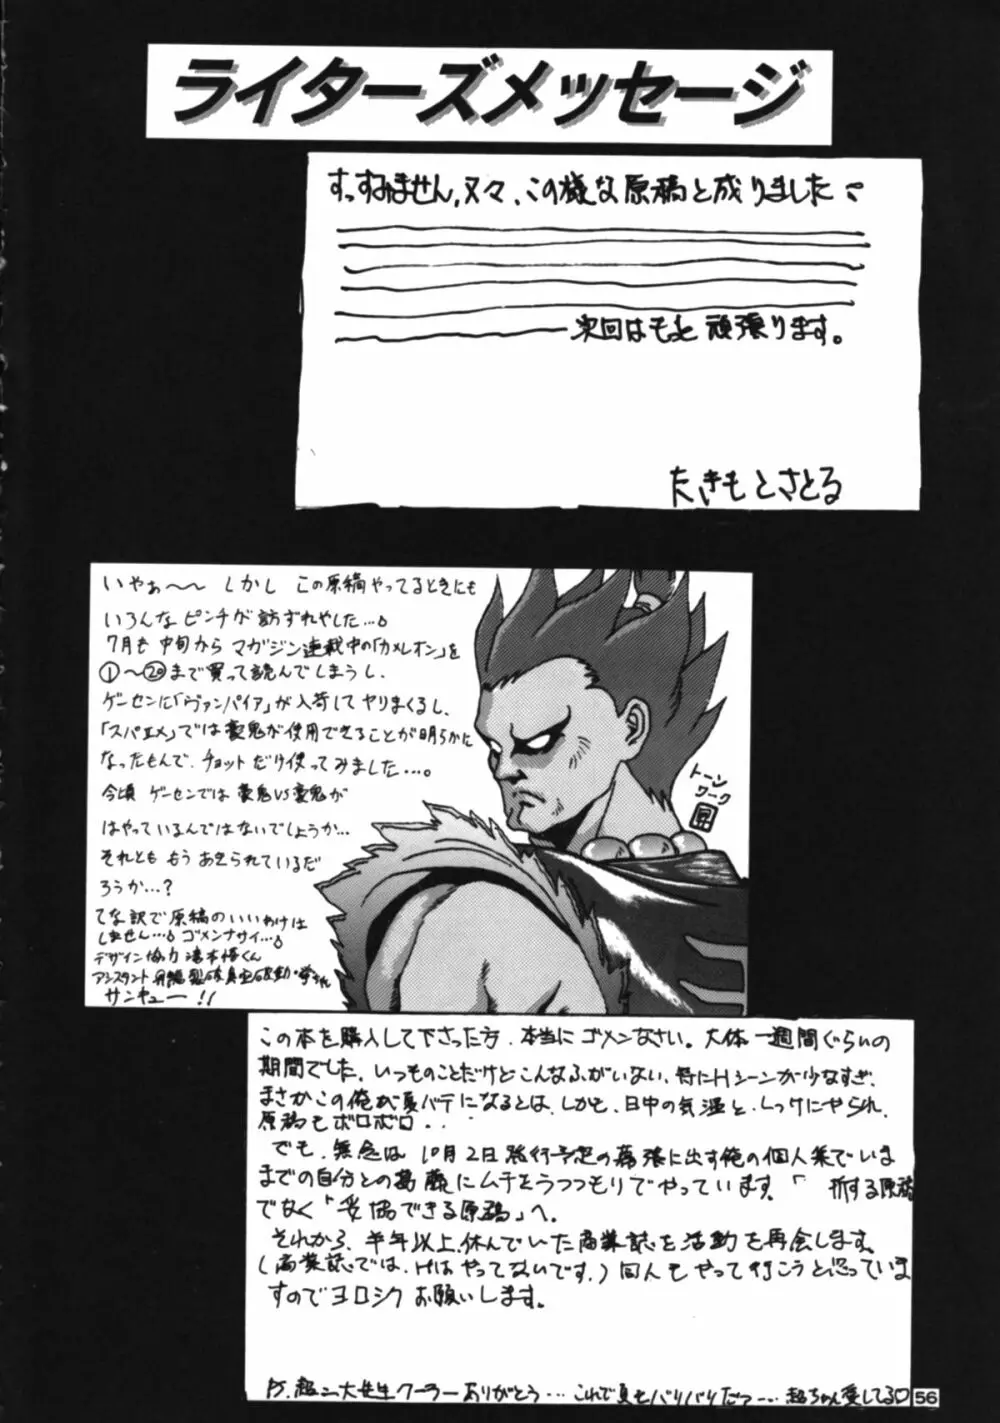 ライターズメッセージ
すっすみません,又々、この様な原稿と成りました
次回はもっと頑張ります。
たきもとさとる
いやぁ〜〜 しかし この原稿やってるときにも
いろんなピンチが訪ずれやした…。
7月も中旬から マガジン連載中の「カメレオン」を
①〜⑳まで買って読んでしまうし、
ゲーセンに「ヴァンパイア」が入荷してヤリまくるし、
「スパエメ」では豪鬼が使用できることが明らかに
なったもんで、チョットだけ使ってみました…。
今頃 ゲーセンでは 豪鬼VS豪鬼が
はやっているんではないでしょうか…
それとも もう あきられているだ
ろうか…?
てな訳で原稿のいいわけは
しません…。ゴメンナサイ…。
デザイン協力 滝本悟くん
アシスタント
サンキュー!!
トーン
ワーク
昇
この本を購入して下さった方、本当にゴメンなさい。大体一週間ぐらいの
期間でした。いつものことだけどこんなふがいない、特にHシーンが少なすぎ、
まさかこの俺が夏バテになるとは、しかも、日中の気温と、しっけにやられ、
原稿もボロボロ..
でも、無念は10月2日発行予定の幕張に出す俺の個人集でいま
までの自分との葛藤にムチをうつつもりでやっています。「 折する原稿
でなく「妥協できる原稿」へ。
それから、半年以上、休んでいた商業誌を活動を再会します。
(商業誌では、Hはやってないです。)同人もやって行こうと思っていま
すのでヨロシクお願いします。
P.S.超二大先生クーラーありがとう…これで夏もバリバリだっ…超ちゃん愛してる♡
56